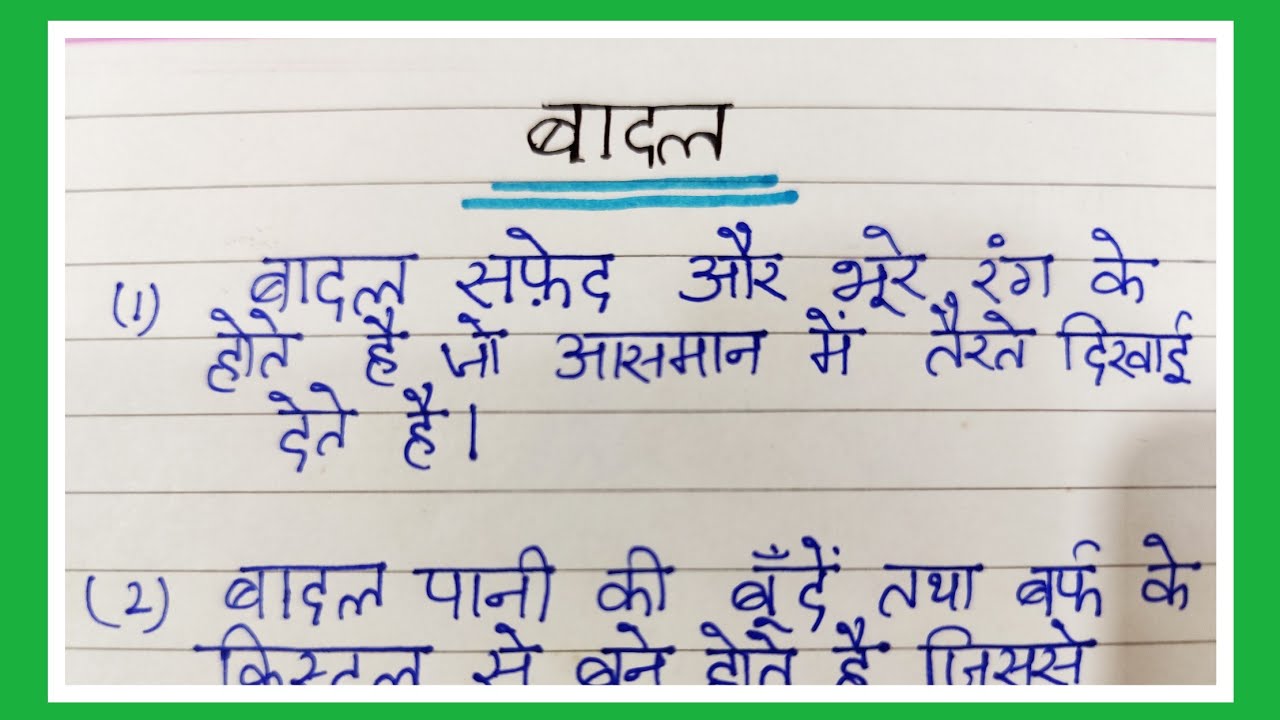 बादल
(1) बादल सफ़ेद और भूरे रंग के
होते है जो आसमान में तैरते दिखाई
देते है।
(2) बादल पानी की बूँदें तथा बर्फ के
क्रिस्टल से बने होते है जिससे